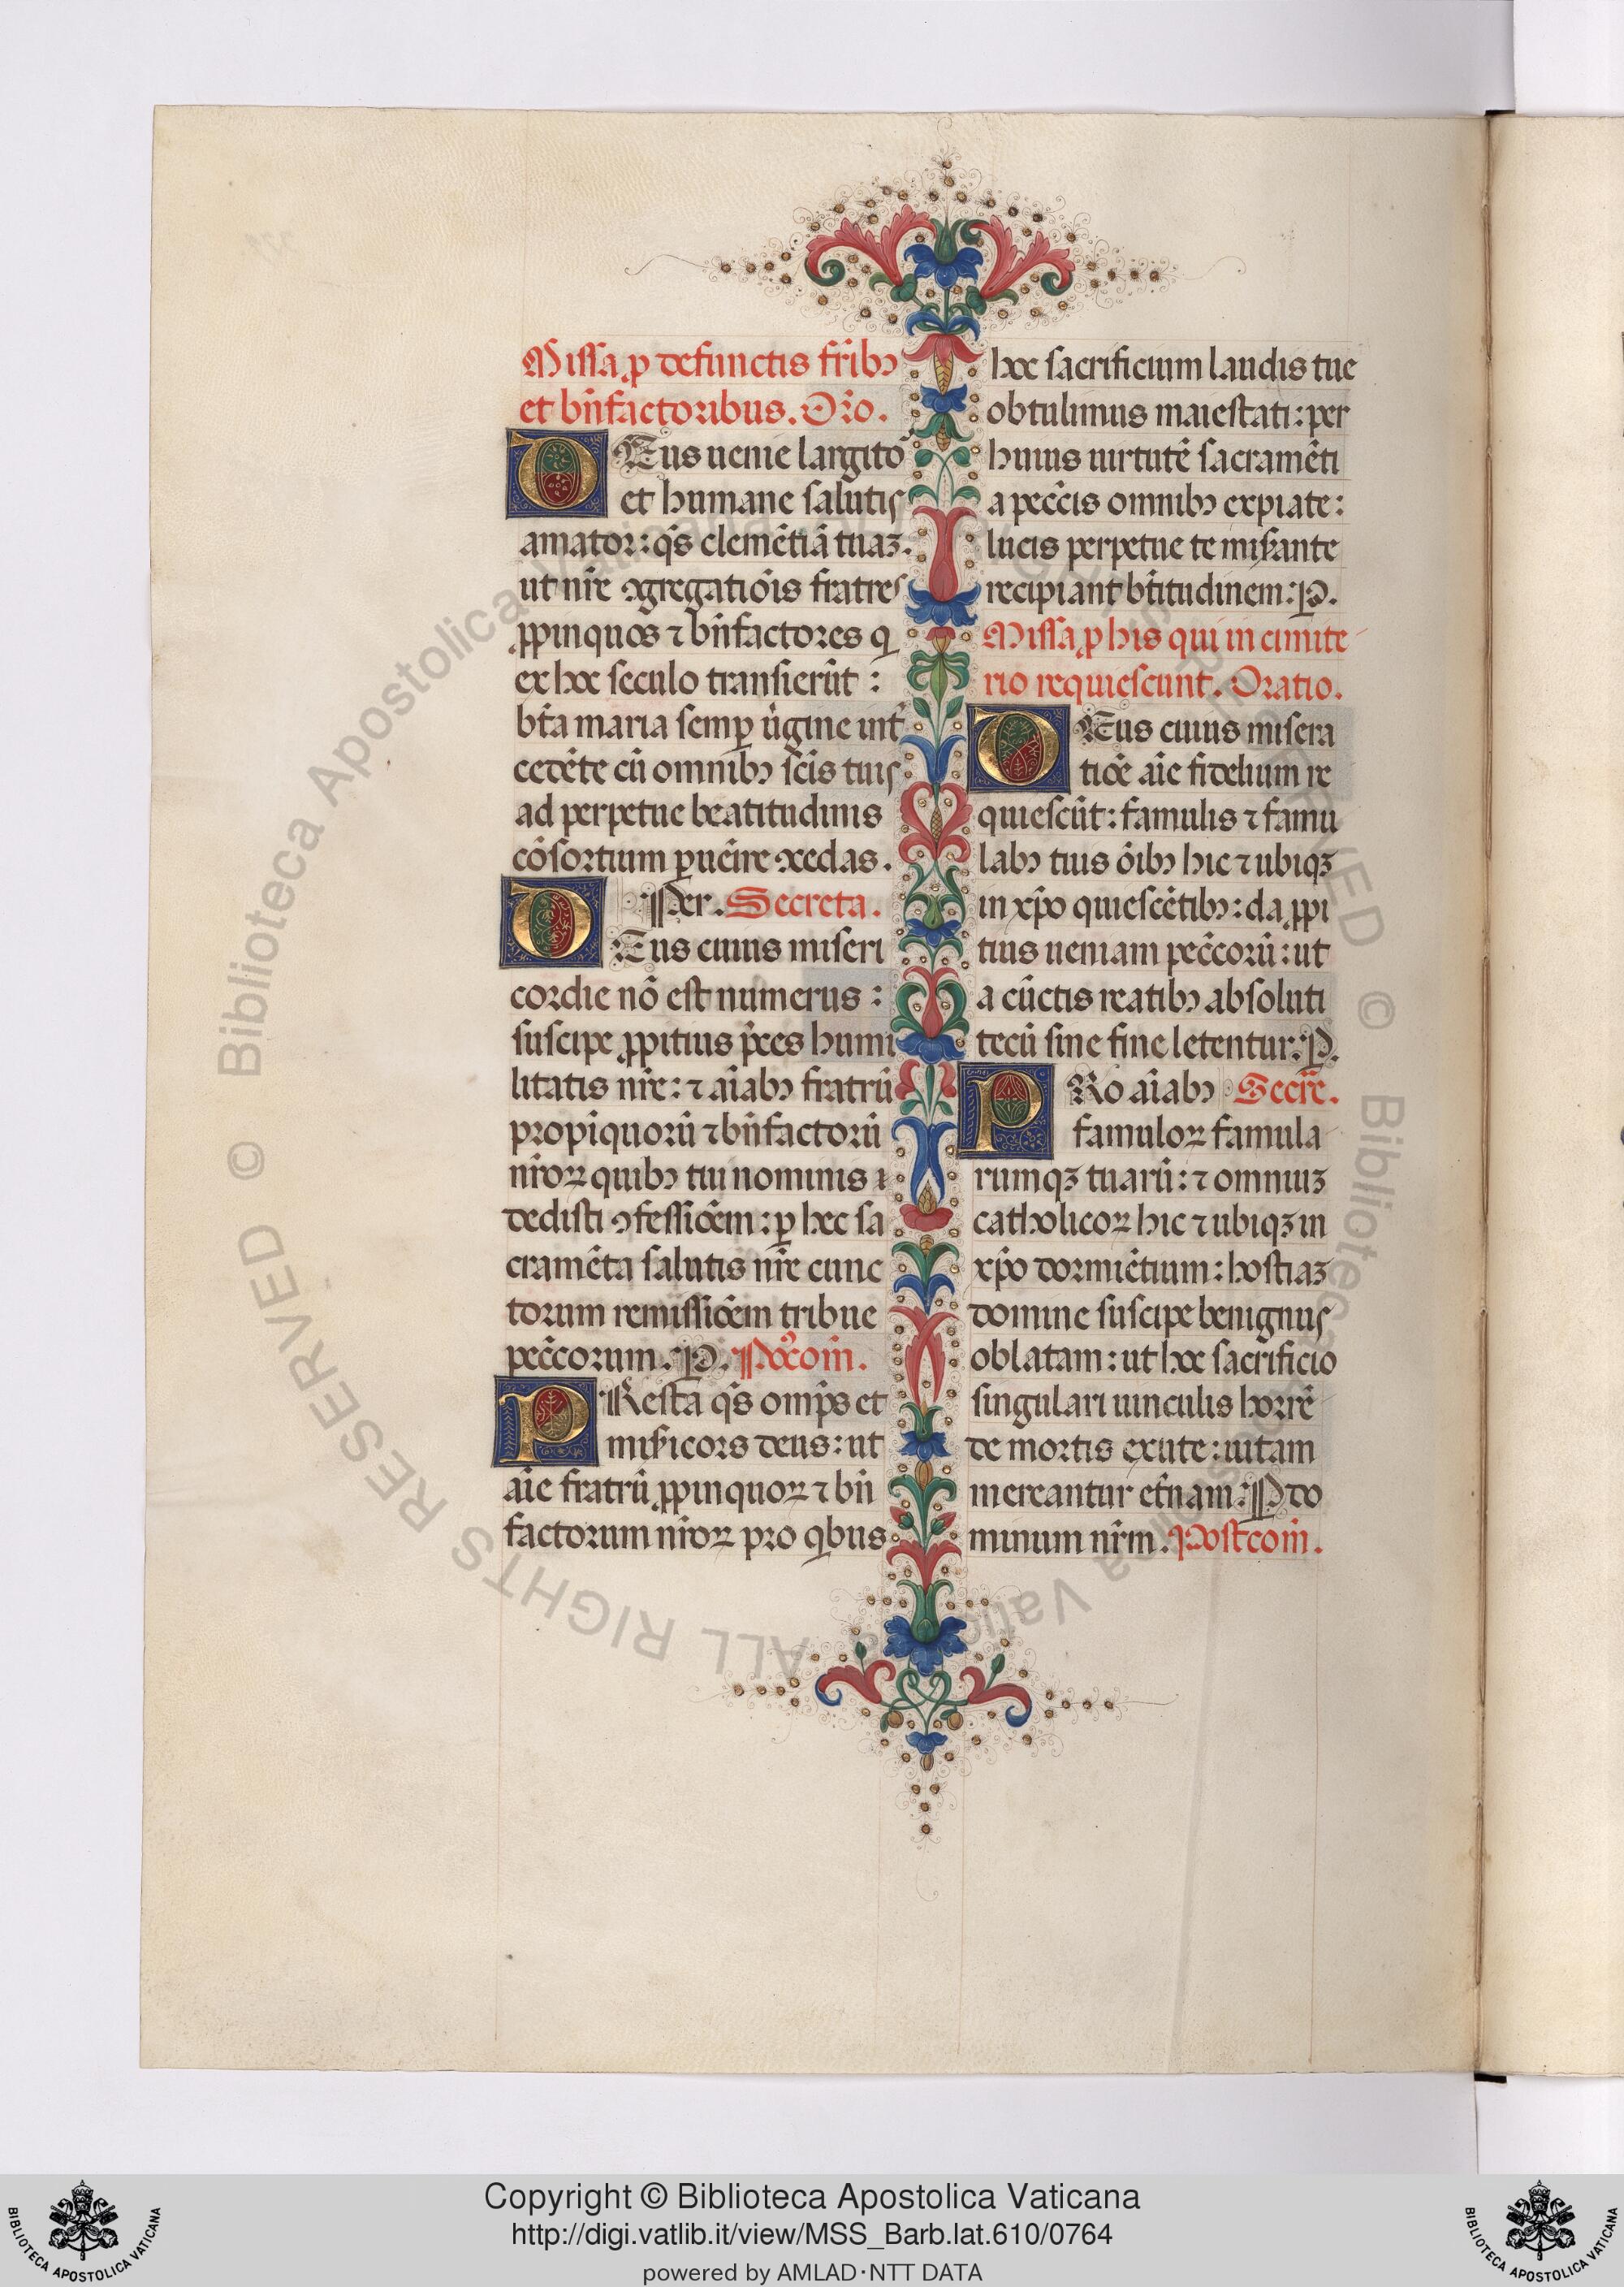 Missa ꝓ defunctis fr̃ibꝫ
et bñfactoribus. Or̃o.
DEus uenie largito
et humane salutis
amator: qs̃ clemẽtiã tuaꝫ.
ut nr̃e ꝯgregatiõis fratres
ꝓpinquos ⁊ bñfactores q̃
ex hoc seculo transierũt:
bt̃a maria semꝑ ũgine int̃
cedẽte cũ omnibꝫ sc̃is tuis
ad perpetue beatitudinis
cõsortium ꝑuẽire ꝯcedas.
Per. Secreta.
DEus cuius miseri
cordie nõ est numerus:
suscipe ꝓpitius p̃ces humi
litatis nr̃e: ⁊ aĩabꝫ fratrũ
propĩquorũ ⁊ bñfactorũ
nr̃oꝝ quibꝫ tui nominis
dedisti ꝯfessiõem: ꝑ hec sa
cramẽta salutis nr̃e cunc
torum remissiõem tribue
pecc̃orum. P. Po᷒cõm.
PResta qs̃ omp̃s et
mis̃icors deus: ut
aĩe fratrũ ꝓpinquoꝝ ⁊ bñ
factorum nr̃oꝝ pro qibus
hoc sacrificium laudis tue
obtulimus maiestati: per
huius uirtutẽ sacramẽti
a pecc̃is omnibꝫ expiate:
lucis perpetue te mis̃ante
recipiant bt̃itudinem: P.
Missa ꝓ his qui in cimite
rio requiescunt. Oratio.
DEus cuius misera
tiõe aĩe fidelium re
quiescũt: famulis ⁊ famu
labꝫ tuis õibꝫ hic ⁊ ubiqꝫ
in xp̃o quiescẽtibꝫ: da ꝓpi
tius ueniam pecc̃orũ: ut
a cũctis reatibꝫ absoluti
tecũ sine fine letentur: P.
PRo aĩabꝫ Secre.
famuloꝝ famula
rumqꝫ tuarũ: ⁊ omniuꝫ
catholicoꝝ hic ⁊ ubiqꝫ in
xp̃o dormiẽtium: hostiaꝫ
domine suscipe benignus
oblatam: ut hoc sacrificio
singulari uinculis horrẽ
de mortis exute: uitam
mereantur et̃nam: P do
minum nr̃m. Postcõm.
© Biblioteca Apostolica Vaticana ALL RIGHTS RESERVED
Copyright © Biblioteca Apostolica Vaticana
http://digi.vatlib.it/view/MSS_Barb.lat.610/0764
powered by AMLAD·NTT DATA
BIBLIOTECA APOSTOLICA VATICANA
BIBLIOTECA APOSTOLICA VATICANA